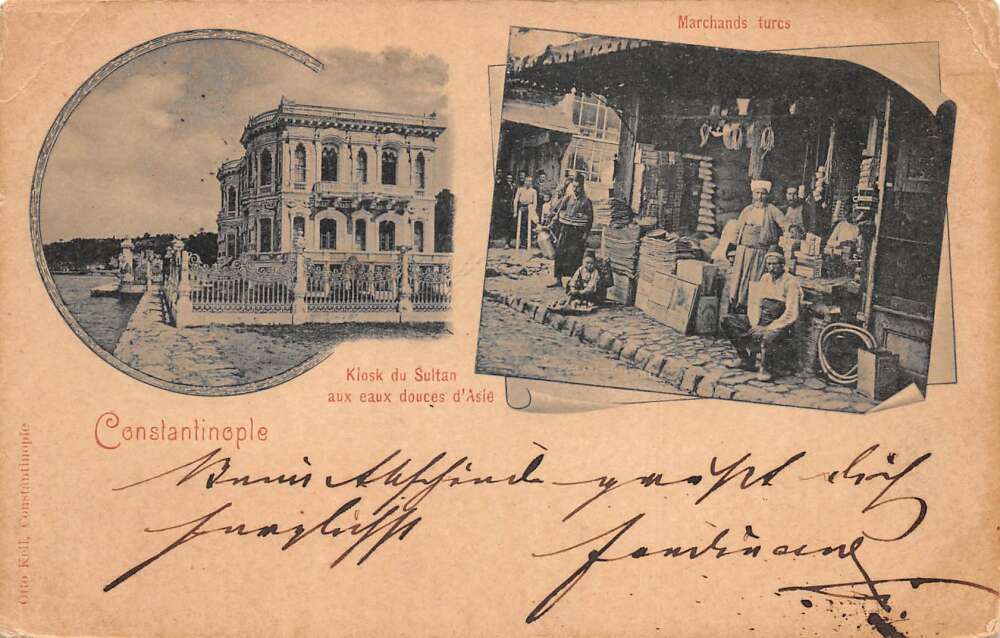 Marchands turcs
Kiosk du Sultan
aux eaux douces d'Asie
Constantinople
Beim Abschiede grüßt dich
herzlichst Ferdinand
Otto Keil, Constantinople